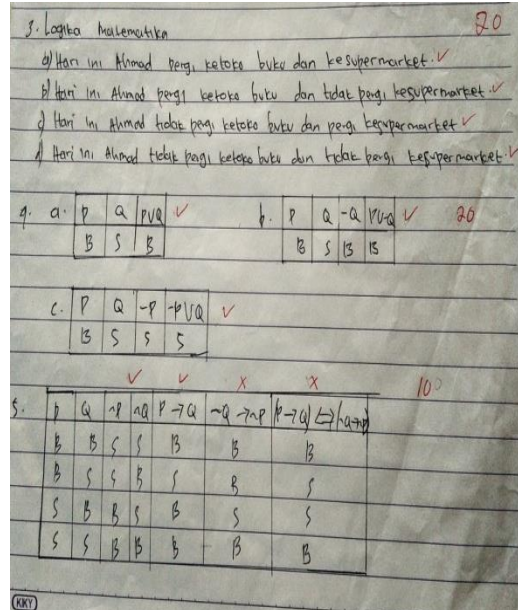 3. Logika Matematika 20
a) Hari ini Ahmad pergi ketoko buku dan kesupermarket. ✓
b) Hari ini Ahmad pergi ketoko buku dan tidak pergi kesupermarket. ✓
c) Hari ini Ahmad tidak pergi ketoko buku dan pergi kesupermarket ✓
d) Hari ini Ahmad tidak pergi ketoko buku dan tidak pergi kesupermarket. ✓
4. a. P Q P∨Q ✓ b. P Q -Q P∨-Q ✓ 20
B S B B S B B
c. P Q -P -P∨Q ✓
B S S S
✓ ✓ X X 10
5. P Q ~P ~Q P → Q ~Q → ~P (P → Q) ⇔ (~Q→~P)
B B S S B B B
B S S B S B S
S B B S B S S
S S B B B B B
KKY